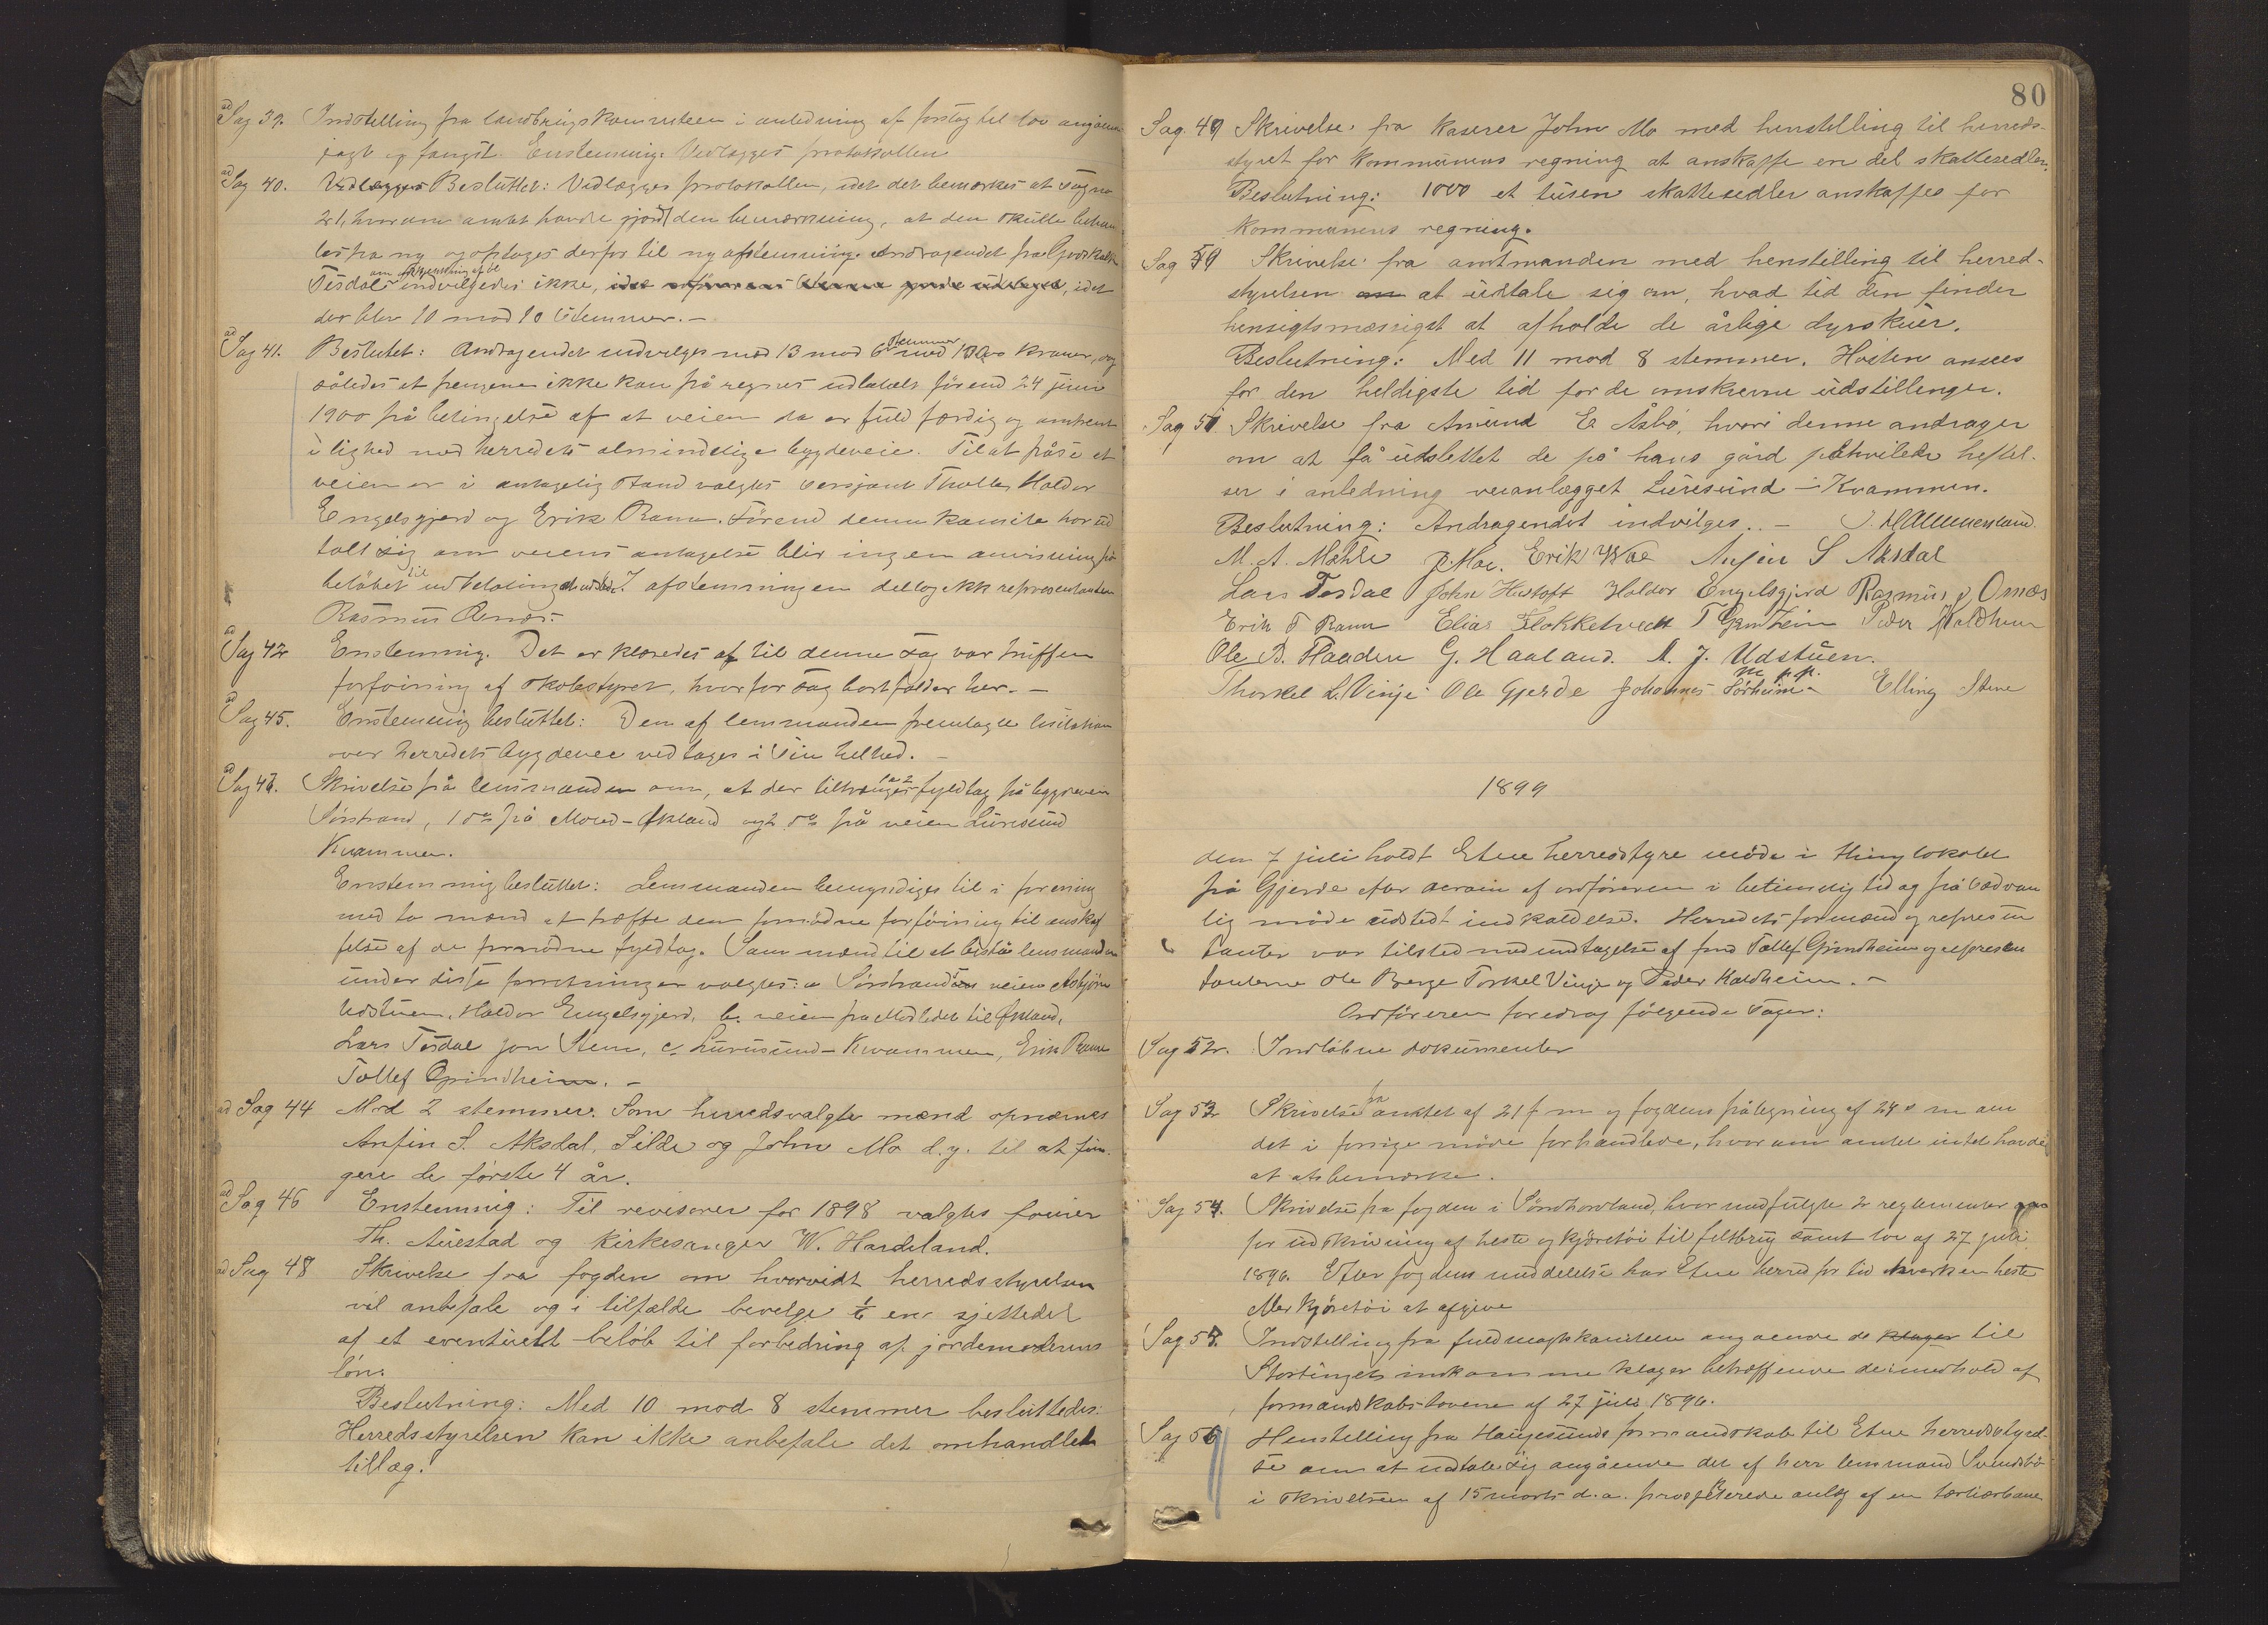 ad Sag 39. Indstilling fra landbrugskomiteen i anledning af forslag til lov angående
jagt og fangst. Enstemmig: Vedlægges protokollen
ad Sag 40. Vedlægges Besluttet: Vedlægges protokollen, idet det bemærkes at sag no
21, hvorom amtet havde gjort den bemærkning, at den skulde behan
les på ny og optages derfor til ny afstemning. Andragendet fra Godskalk
Tesdal om indvilgedes ikke, idet
der blev 10 mod 10 stemmer. -
ad Sag 41. Beslutet: Andragendet indvilges med 13 mod 6 stemmer med kroner, dog
således at pengene ikke kan på regnes udbetalt förend 24 juni
1900 på betingelse af at veien da er fuld færdig og omtrent
i lighed med herredets almindelige bygdeveie. Til at påse at
veien er i antagelig stand valgtes sersjant Tholles, Haldor
Engelsgjerd og Erik Ramn. Förend denne komite har ud
talt sig om veiens antagelse blir ingen anvisning på
belöbet til udbetaling I afstemningen deltog ikk repræsentanten
Rasmus Ørnæs.
ad Sag 42 Enstemmig. Det er klaredes at til denne sag var truffen
forföining af skolestyret, hvorfor sag bortfalder her. -
ad Sag 45. Enstemmig besluttet: Den af lensmanden fremlagte
over herredets bygdeveie vedtages i sin helhed. -
ad Sag 47. Skrivelse frå lensmanden om, at der tiltrænges fyldtag på bygdeveien
Sörstrand, 1 do på Moved-Økland og 2 do på veien Luresund
Kvammen.
Enstemmig besluttet: Lensmanden bemyndiges til i forening
med to mænd at træffe den fornödne forföining til anskaf
felse af de fornödne fyldtag. Som mænd til at bistå lensmanden
under disse forretninger valgtes: a Sörstrand veien Asbjörn
Udstuen, Haldor Engelsgjerd, b. veien fra Modledet til Økland,
Lars Tesdal Jon Stene, c Luresund-Kvammen, Erik Ramn
Tollef Grindheim. -
ad Sag 44 Mod 2 stemmer. Som herredsvalgte mænd opnævnes
Anfin S. Aksdal, Silde og John Mo d.y. til at fun-
gere de første 4 år.
ad Sag 46 Enstemmig: Til revisorer for 1898 valgtes fourier
Th. Aurestad og kirkesanger W. Hardeland.
ad Sag 48 Skrivelse fra fogden om hvorvidt herredsstyrelsen
vil anbefale og i tilfælde bevilge 1/6 en sjettedel
af et eventuelt belöb til forbedring af jordemoderens
lön.
Beslutning: Med 10 mod 8 stemmer besluttedes:
Herredsstyrelsen kan ikke anbefale det omhandlede
tillæg.
80
Sag. 49 Skrivelse fra kaserer John Mo med henstilling til herreds-
styret for kommunens regning at anskaffe en del skattesedler.
Beslutning: 1000 et tusen skattesedler anskaffes for
kommunens regning.
Sag 50 Skrivelse fra amtmanden med henstilling til herred-
styrelsen om at udtale sig om, hvad tid den finder
hensigtsmæssigst at afholde de årlige dyrskuer.
Beslutning: Med 11 mod 8 stemmer. Hösten ansees
for den heldigste tid for de omskrevne udstillinger.
Sag 51 Skrivelse fra Amund E Åsbö, hvori denne andrager
om at få udslettet de på hans gård påhvilede heftel-
ser i anledning veianlægget Luresund - Kvammen.
Beslutning: Andragendet indvilges. - S. Hammersland.
M. A. Mæhle J. Moe. Erik Moe Anfin S Aksdal
Lars Tesdal John Hustoft Haldor Engelsgjerd Rasmus J Ornæs
Erik T Ramn Elias Flokketvedt T Grindheim Peder Haldheim
Ole B. Haaden G. Haaland. A. J. Udstuen.
Thorkel L. Vinje Ole Gjerde Johannes Sörheim m. p. p. Elling Stene
1899
den 7 juli holdt Etne herredstyre möde i thinglokalet
på Gjerde efter avram af ordföreren i betimelig tid og på sædvan
lig måde udstedt indkaldelse. Herredets formænd og represen
tanter var tilsted med undtagelse af fmd Tollef Grindheim og represen
tanterne Ole Berge Torkel Vinje og Peder Haldheim. -
Ordföreren foredrog fölgende sager:
Sag 52. Indlöbne dokumenter
Sag 53 Skrivelse fra amtet af 21 f m og fogdens påtegning af 24 s m om
det i forrige möde forhandlede, hvorom amtet intet havde
at atbemærke.
Sag 54. Skrivelse fra fogden i Söndhordland, hvor medfulgte 2 reglementer
for udskrivning af heste og kjöretöi til feltbrug samt lov af 27 juli
1896. Efter fogdens meddelelse har Etne herred for tid hverken heste
eller kjöretöi at afgive
Sag 55. Indstilling fra fuldmagtskomiteen angaaende de klager til
Stortinget indkomme klager betræffende de i medhold af
formandskabslovene af 27 juli 1896.
Sag 56 Henstilling fra Haugesunds formandskab til Etne herredsstyrel-
se om at udtale sig angående det af herr lensmand Svendsbö
i skrivelsen af 15 marts d.a. prosjekterede anlæg af en tertiærbane